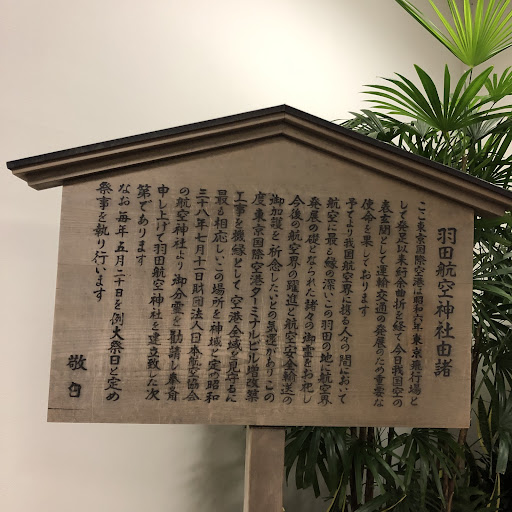 羽田航空神社由緒
ここ東京国際空港は昭和六年東京飛行場と
して発足以来紆余曲折を経て今日我国空の
表玄関として運輸交通の発展のため重要な
使命を果しております
予てより我国航空界に携る人々の間において
航空に最も縁の深いこの羽田の地に航空界
発展の礎となられた諸々の御霊をお祀し
今後の航空界の躍進と航空安全輸送の
御加護を祈念したいとの気運があり この
度東京国際空港ターミナルビル増改築
工事を機縁として空港全域を見守るに
最も相応しいこの場所を神域と定め昭和
三十八年七月十一日財団法人日本航空協会
の航空神社より御分霊を勧請し奉斎
申し上げて羽田航空神社を建立致した次
第であります
なお毎年五月二十日を例大祭日と定め
祭事を執り行います
敬白